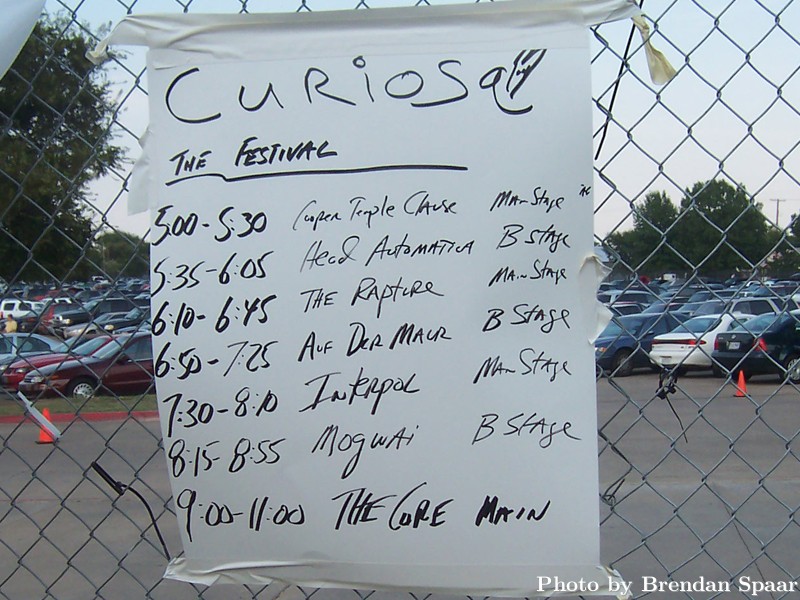 CURIOSa
THE FESTIVAL
5:00-5:30 Cooper Temple Clause Main Stage
5:35-6:05 Head Automatica B Stage
6:10-6:45 THE RAPTURE Main Stage
6:50-7:25 AUF DER MAUR B Stage
7:30-8:10 INTERPOL Main Stage
8:15-8:55 MOGWAI B Stage
9:00-11:00 THE CURE MAIN
Photo by Brendan Spaar